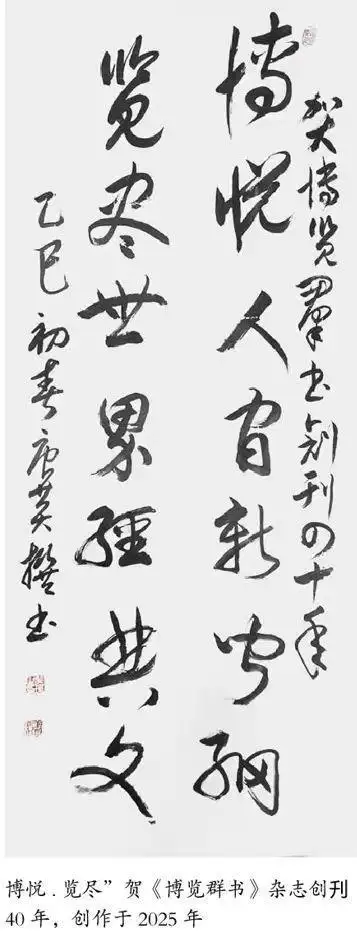 贺博览羣书创刊四十年
博悦人间新闻網
览尽世界經典文
乙巳初春撰书
博悦.览尽”贺《博览群书》杂志创刊
40 年，创作于 2025 年